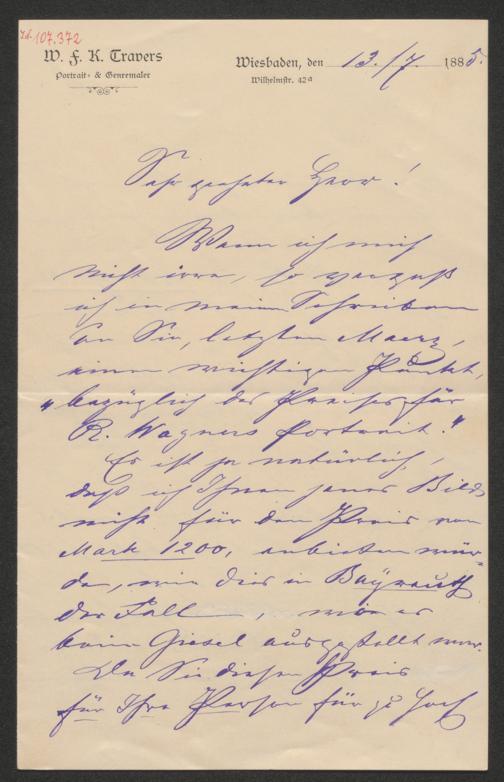 I.N. 107.372
W. F. K. Travers
Portrait- & Genremaler
Wiesbaden, den 13./7. 1885.
Wilhelmstr. 42a
Sehr geehrter Herr!
Wenn ich mich
nicht irre, so vergaß
ich in meinem Schreiben
an Sie, letzten Maerz,
einen wichtigen Punkt,
"bezüglich des Preises für
R. Wagners Portrait."
Es ist ja natürlich,
daß ich Ihnen jenes Bild
nicht für den Preis von
Mark 1200, anbieten wür-
de, wie dies in Bayreuth
der Fall, wo es
beim Giesel ausgestellt war.
Da Sie diesen Preis
für Ihre Person für zu hoch